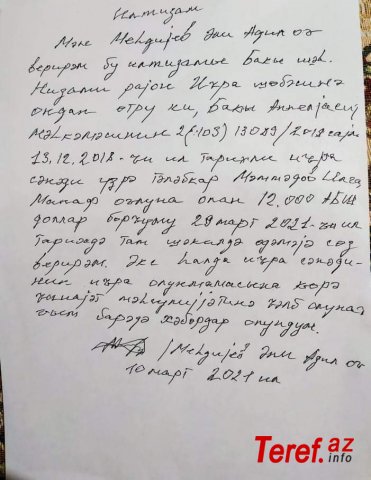 Илтизам
Мән Мендијев Әли Адил оғ.
верирәм бу илтизамы Бакы шәһ.
Низами рајон Иҹра шөбәсинә
ондан өтру ки, Бакы Аппелјасија
Мәһкәмәсинин 2(-103) 13089/2018 сајлы
13.12.2018-ҹи ил тарихли иҹра
сәнәди үзрә тәләбкар Мәммәдов
оғлуна олан 12.000 АБШ
доллар борҹуму 29 март 2021-ҹи ил
тарихдә там шәкилдә өдәмәјә сөз
верирәм. Әкс һалда иҹра сәнәди-
нин иҹра олунмамасына ҝөрә
ҹинајәт мәсулијјәтинә ҹәлб олунаҹа
барәдә хәбәрдар олундум.
/Мендијев Әли Адил оғ
10 март 2021 ил
Teref.az
info